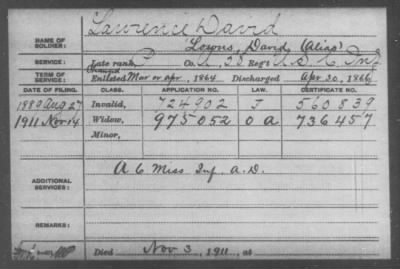 Lawrence David
NAME OF SOLDIER: Lowns, David (Alias)
SERVICE: Late rank, P Co. A, 58 Reg't U S C Inf
TERM OF SERVICE: Enlisted Mar or apr, 1864 Discharged Apr 30, 1866
DATE OF FILING. CLASS. APPLICATION NO. LAW. CERTIFICATE NO.
1889 Aug 27 Invalid, 724902 J 560839
1911 Nov 14 Widow, 975052 O A 736457
Minor,
ADDITIONAL SERVICES: A 6 Miss Inf A.D.
REMARKS:
Died Nov 3, 1911, at